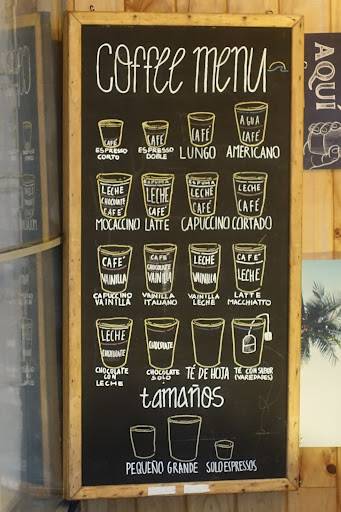 Coffee menu
CAFÉ
ESPRESSO
CORTO
CAFÉ
ESPRESSO
DOBLE
CAFÉ
LUNGO
AGUA
CAFÉ
AMERICANO
LECHE
CHOCOLATE
CAFÉ
MOCACCINO
ESPUMA
LECHE
CAFÉ
LATTE
ESPUMA
LECHE
CAFÉ
CAPUCCINO
LECHE
CAFÉ
CORTADO
CAFÉ
VAINILLA
CAPUCCINO
VAINILLA
CAFÉ
CHOCOLATE
VAINILLA
VAINILLA
ITALIANO
LECHE
VAINILLA
VAINILLA
LECHE
CAFÉ
LECHE
LATTE
MACCHIATO
LECHE
CHOCOLATE
CHOCOLATE
CON
LECHE
CHOCOLATE
CHOCOLATE
SOLO
TÉ DE HOJA
TÉ CON SABOR
(VARIEDADES)
tamaños
PEQUEÑO GRANDE SOLO ESPRESSOS
AQUÍ